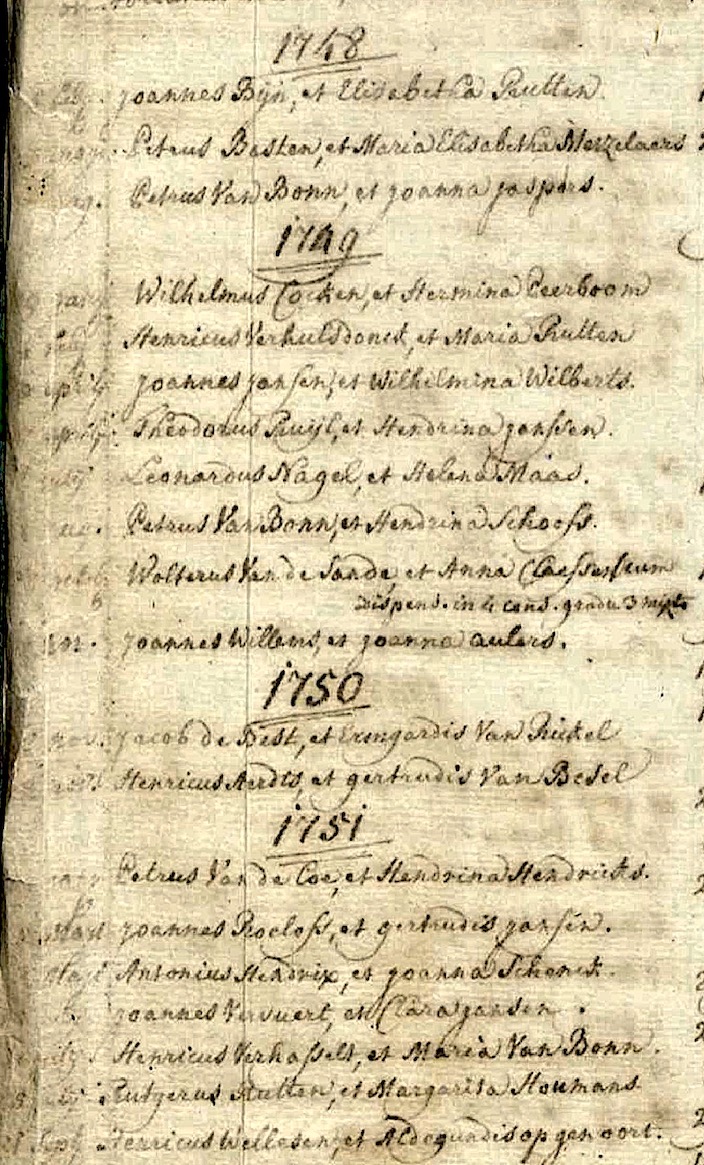 1748
Joannes Bijn, et Elisabetha Rutten
Petrus Basten, et Maria Elisabetha Metzelaers
Petrus Van Bonn, et Joanna Jaspers.
1749
Wilhelmus Cocken, et Hermina Peerboom
Henricus Verhulsdonck, et Maria Rutten
aprilis Joannes Jansen, et Wilhelmina Wilberts.
Theodorus et Hendrina Janssen.
Leonardus Nagel, et Helena Maas.
aug. Petrus Van Bonn, et Hendrina Schoofs.
Wolterus Van de Sande, et Anna
dispens. in 4 cons. gradu 3 mixto
Joannes Willems, et Joanna aulers.
1750
nov. Jacob de Best, et Ermgardis Van Rickel
Henricus Aerdts, et gertrudis Van Besel
1751
Petrus Van de Coe, et Hendrina Hendricks.
Mart Joannes Roelofs, et gertrudis Jansen.
Maji Antonius Hendrix, et Joanna Schenck.
Joannes Vervuert, et Clara Jansen.
Henricus Verhasselt, et Maria Van Bonn.
Rutgerus Rutten, et Margarita Houmans
Sept Henricus Wellesen, et Aldegundis op gen oort.